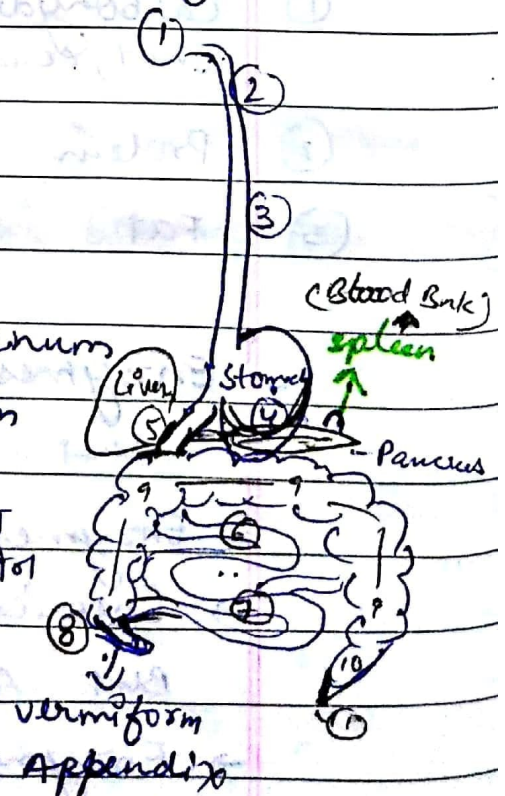 1
2
3
(Blood Bnk)
spleen
num
Liver
Stomach
4
5
Pancreas
9
9
6
7
9
8
10
vermiform
Appendix